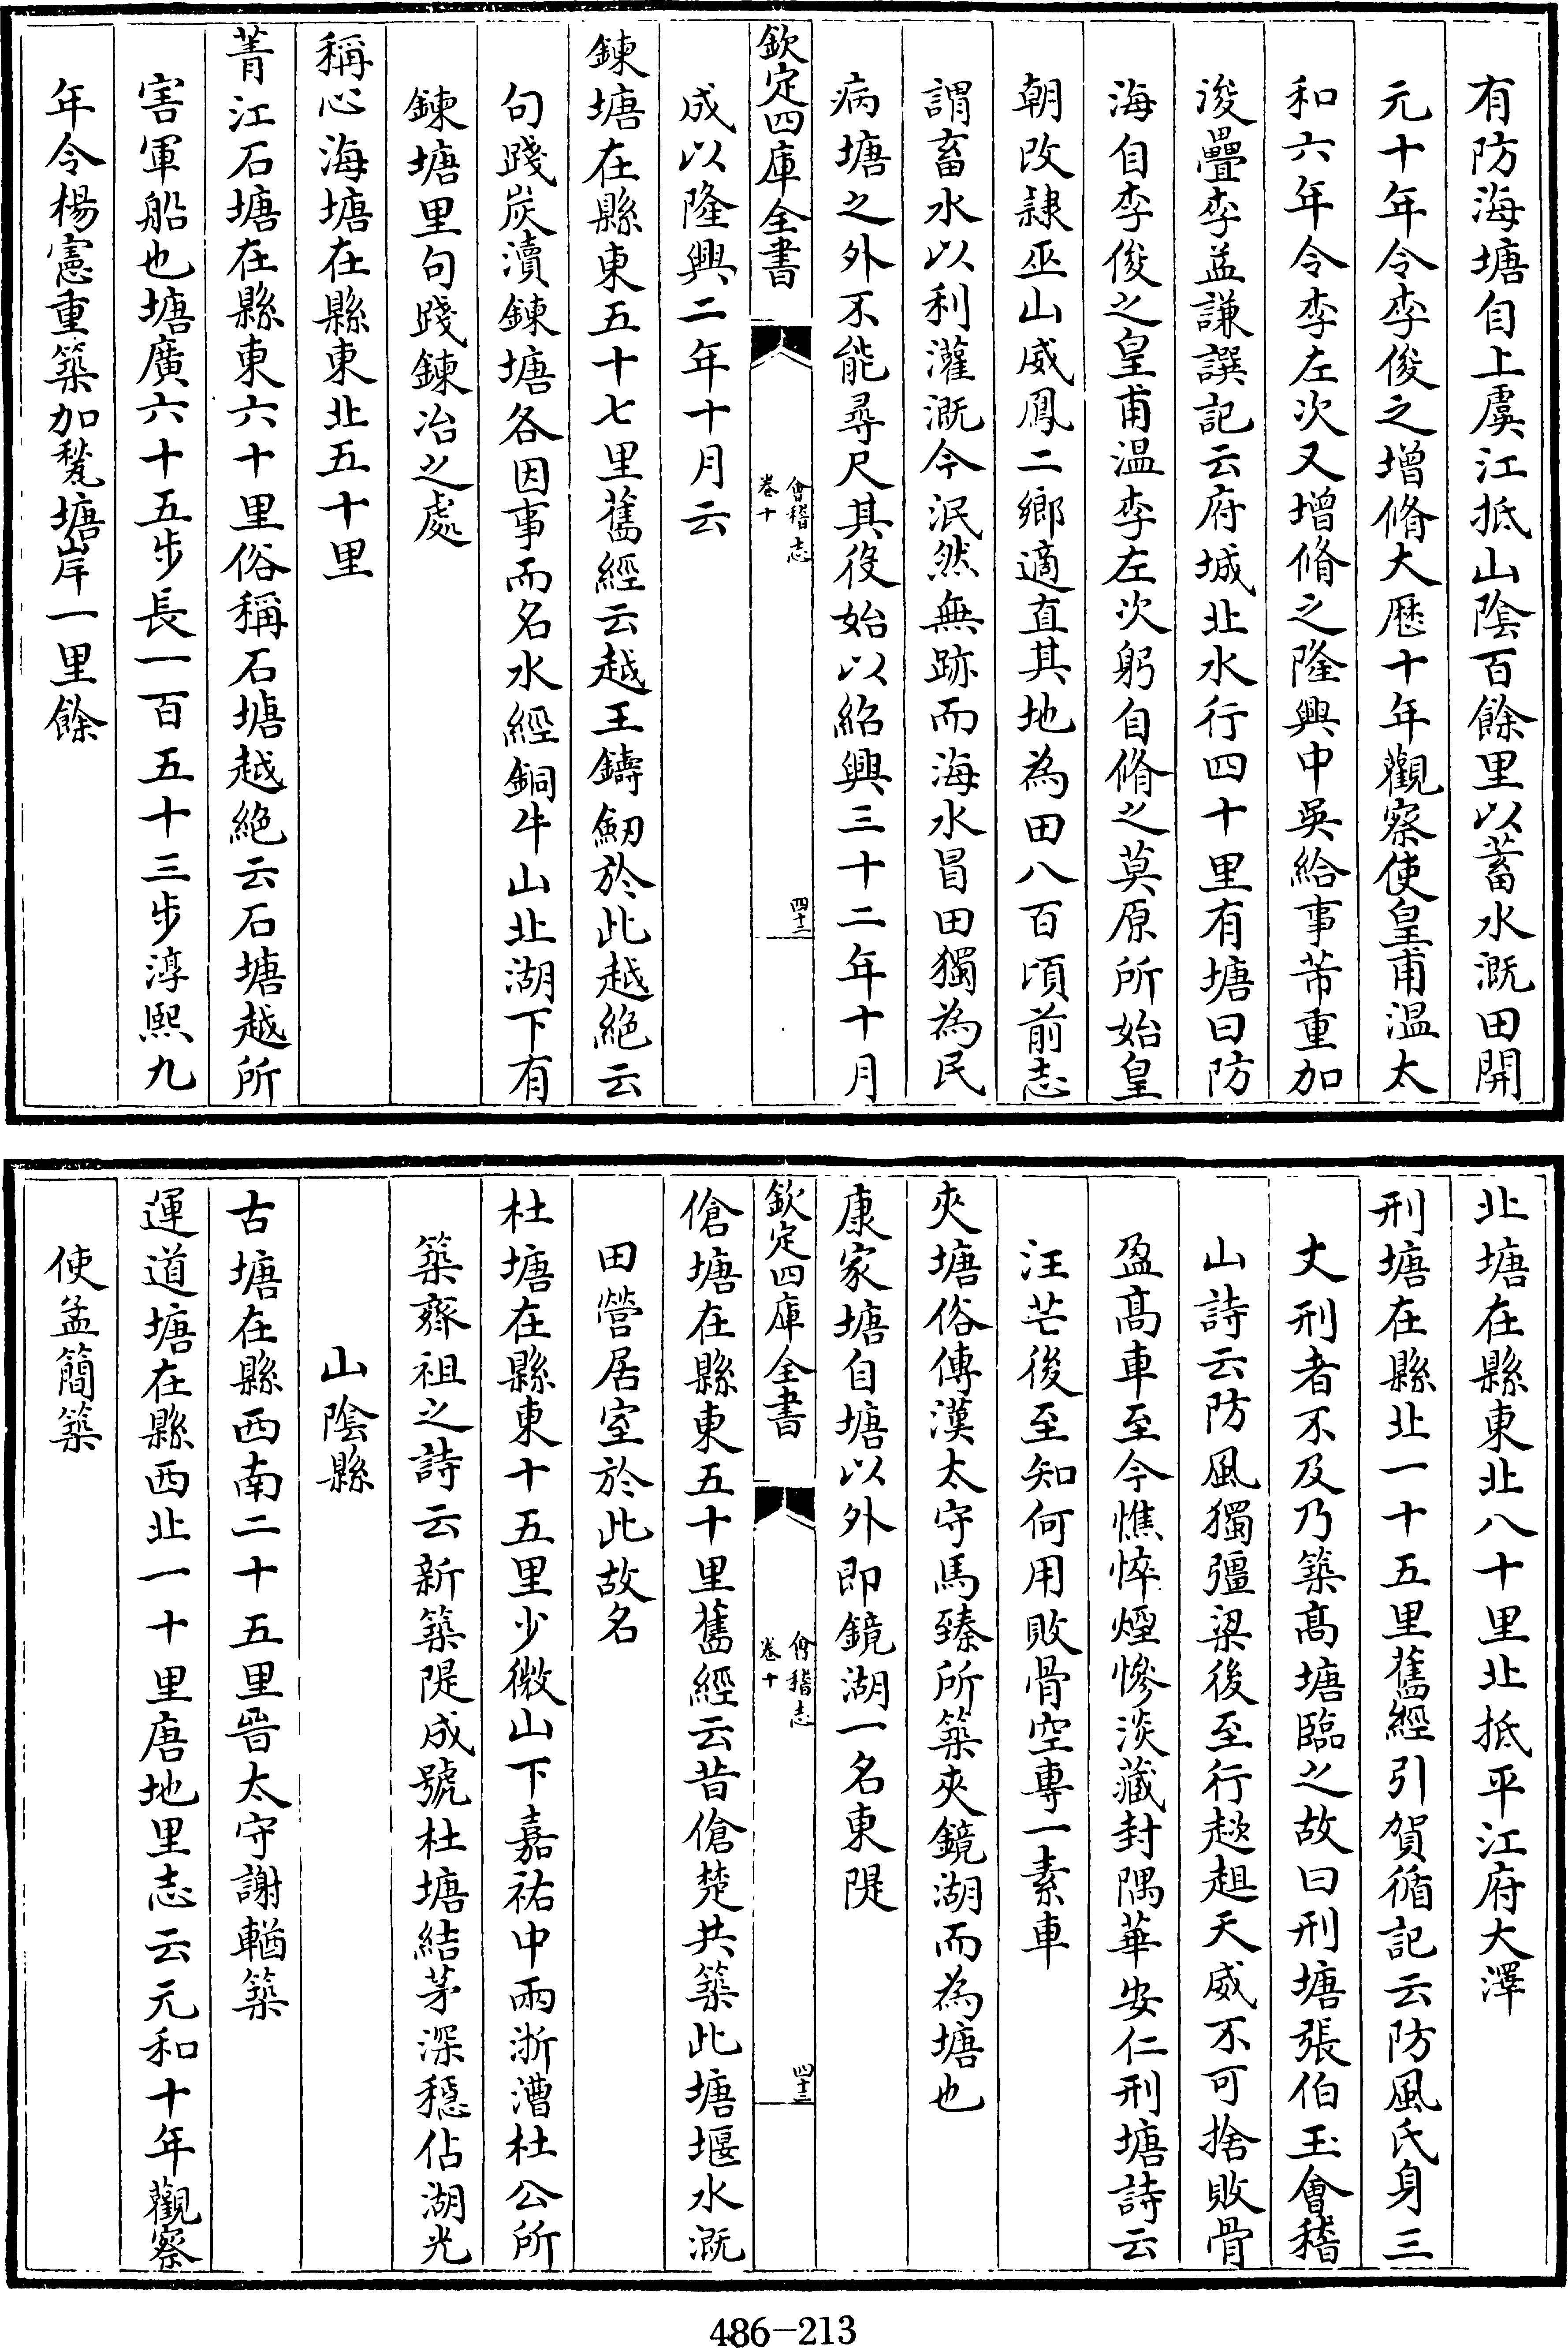 有防海塘自上虞江抵山陰百餘里以蓄水溉田開
元十年令李俊之增脩大厯十年觀察使皇甫溫太
和六年令李左次又增脩之隆興中吳給事芾重加
浚疊李益謙譔記云府城北水行四十里有塘曰防
海自李俊之皇甫溫李左次躬自脩之莫原所始皇
朝改隷巫山威鳳二鄉適直其地為田八百頃前志
謂畜水以利灌溉今泯然無跡而海水冒田獨為民
病塘之外不能尋尺其役始以紹興三十二年十月
欽定四庫全書
會稽志
卷十
四十二
成以隆興二年十月云
鍊塘在縣東五十七里舊經云越王鑄劒於此越絶云
句踐炭瀆鍊塘各因事而名水經銅牛山北湖下有
鍊塘里句踐鍊冶之處
稱心海塘在縣東北五十里
菁江石塘在縣東六十里俗稱石塘越絶云石塘越所
害軍船也塘廣六十五步長一百五十三步淳熙九
年令楊憲重築加甃塘岸一里餘
北塘在縣東北八十里北抵平江府大澤
刑塘在縣北一十五里舊經引賀循記云防風氏身三
丈刑者不及乃築髙塘臨之故曰刑塘張伯玉會稽
山詩云防風獨彊梁後至行趑趄天威不可捨敗骨
盈髙車至今憔悴煙慘淡藏封隅華安仁刑塘詩云
汪芒後至知何用敗骨空專一素車
夾塘俗傳漢太守馬臻所築夾鏡湖而為塘也
康家塘自塘以外即鏡湖一名東隄
欽定四庫全書
會稽志
卷十
四十三
傖塘在縣東五十里舊經云昔傖楚共築此塘堰水溉
田營居室於此故名
杜塘在縣東十五里少微山下嘉祐中兩浙漕杜公所
築齊祖之詩云新築隄成號杜塘結茅深穩佔湖光
山陰縣
古塘在縣西南二十五里晉太守謝輶築
運道塘在縣西北一十里唐地里志云元和十年觀察
使孟簡築
486—213